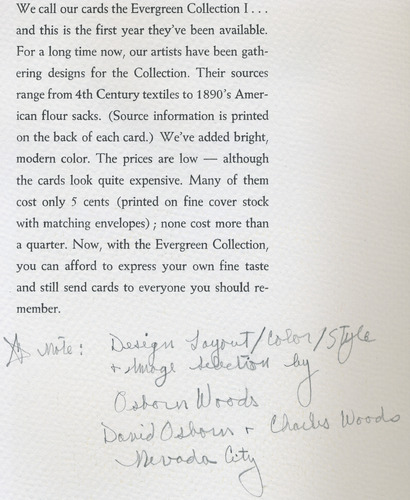 We call our cards the Evergreen Collection I . . .
and this is the first year they've been available.
For a long time now, our artists have been gath-
ering designs for the Collection. Their sources
range from 4th Century textiles to 1890's Amer-
ican flour sacks. (Source information is printed
on the back of each card.) We've added bright,
modern color. The prices are low — although
the cards look quite expensive. Many of them
cost only 5 cents (printed on fine cover stock
with matching envelopes) ; none cost more than
a quarter. Now, with the Evergreen Collection,
you can afford to express your own fine taste
and still send cards to everyone you should re-
member.
Note: Design Layout/Color/Style
+ image selection by
Osborn Woods
David Osborn + Charles Woods
Nevada City